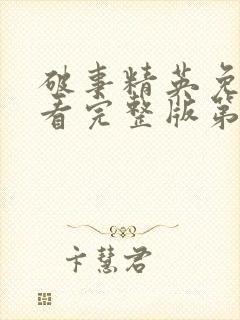 破事精英免
看完整版第
卞慧君